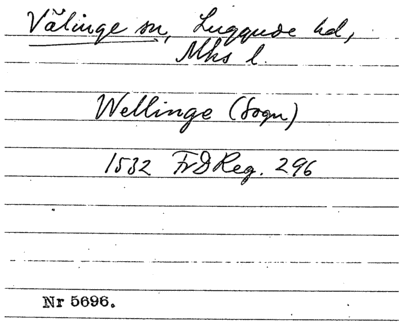 Välinge sn, Luggude hd,
Mhs l.
Wellinge (Sogn)
1532 FrDReg. 296
Nr 5696.